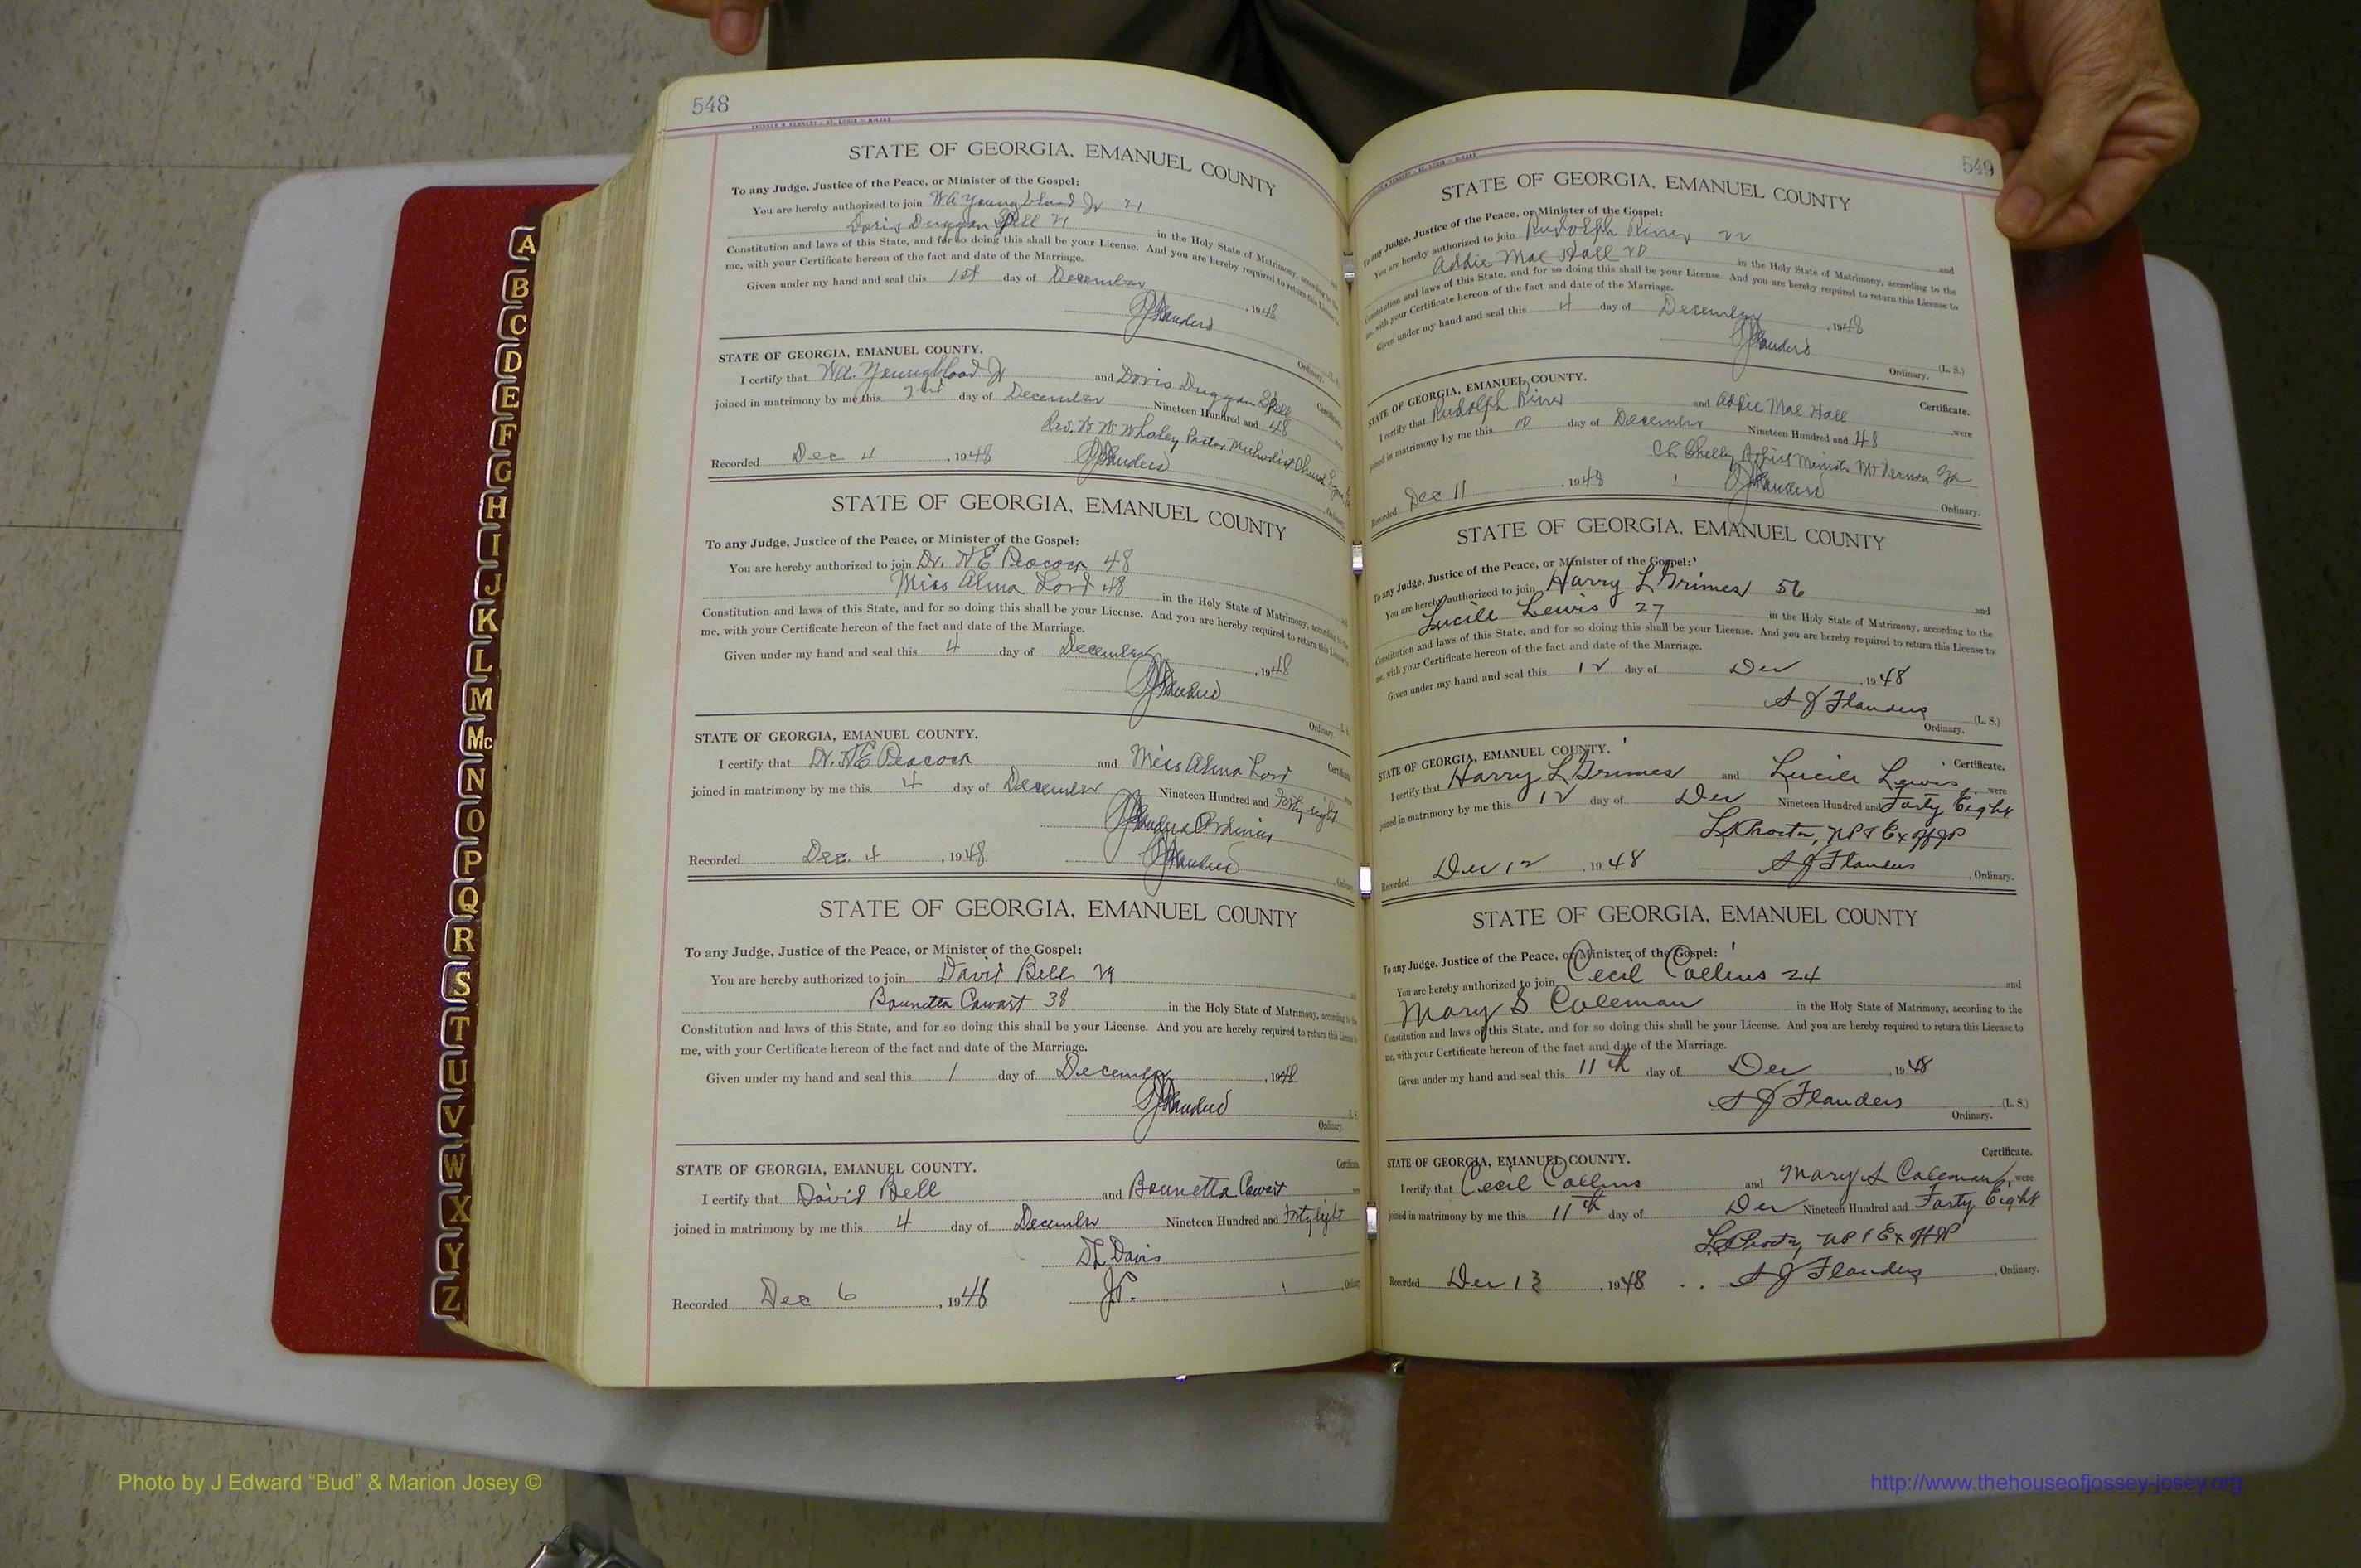 548
STATE OF GEORGIA, EMANUEL COUNTY
To any Judge, Justice of the Peace, or Minister of the Gospel:
You are hereby authorized to join W A Youngblood Jr 21
Doris Duggan Spell 21 in the Holy State of Matrimony, according to the
Constitution and laws of this State, and for so doing this shall be your License. And you are hereby required to return this License to
me, with your Certificate hereon of the fact and date of the Marriage.
Given under my hand and seal this 1st day of December, 1948
Flanders
Ordinary.
STATE OF GEORGIA, EMANUEL COUNTY.
Certificate
I certify that W.A. Youngblood Jr and Doris Duggan Spell
joined in matrimony by me this 2nd day of December Nineteen Hundred and 48
Rev. W W Whaley Pastor Methodist Church
Recorded Dec 4, 1948 Flanders
Ordinary.
STATE OF GEORGIA, EMANUEL COUNTY
To any Judge, Justice of the Peace, or Minister of the Gospel:
You are hereby authorized to join Dr. H E Peacock 48
Miss Alma Lord 48 in the Holy State of Matrimony, according to the
Constitution and laws of this State, and for so doing this shall be your License. And you are hereby required to return this License to
me, with your Certificate hereon of the fact and date of the Marriage.
Given under my hand and seal this 4 day of December, 1948
Flanders
Ordinary.
STATE OF GEORGIA, EMANUEL COUNTY.
Certificate
I certify that Dr. H E Peacock and Miss Alma Lord
joined in matrimony by me this 4 day of December Nineteen Hundred and Forty eight
Flanders Ordinary
Recorded Dec. 4, 1948 Flanders
STATE OF GEORGIA, EMANUEL COUNTY
To any Judge, Justice of the Peace, or Minister of the Gospel:
You are hereby authorized to join David Bell 29
Bounetta Cowart 38 in the Holy State of Matrimony, according to the
Constitution and laws of this State, and for so doing this shall be your License. And you are hereby required to return this License
me, with your Certificate hereon of the fact and date of the Marriage.
Given under my hand and seal this 1 day of December, 1948
Flanders
Ordinary.
STATE OF GEORGIA, EMANUEL COUNTY.
Certificate
I certify that David Bell and Bounetta Cowart
joined in matrimony by me this 4 day of December Nineteen Hundred and Forty eight
D L Davis
Recorded Dec 6, 1948 J.P.
Ordinary
549
STATE OF GEORGIA, EMANUEL COUNTY
To any Judge, Justice of the Peace, or Minister of the Gospel:
You are hereby authorized to join Rudolph Riner 22 and
Addie Mae Hall 20 in the Holy State of Matrimony, according to the
Constitution and laws of this State, and for so doing this shall be your License. And you are hereby required to return this License to
me, with your Certificate hereon of the fact and date of the Marriage.
Given under my hand and seal this 4 day of December, 1948
Flanders (L. S.)
Ordinary.
STATE OF GEORGIA, EMANUEL COUNTY.
Certificate.
I certify that Rudolph Riner and Addie Mae Hall were
joined in matrimony by me this 10 day of December Nineteen Hundred and 48
Shelly Minister Mt Vernon Ga
Recorded Dec 11, 1948 Flanders, Ordinary.
STATE OF GEORGIA, EMANUEL COUNTY
To any Judge, Justice of the Peace, or Minister of the Gospel:
You are hereby authorized to join Harry L Grimes 56 and
Lucile Lewis 27 in the Holy State of Matrimony, according to the
Constitution and laws of this State, and for so doing this shall be your License. And you are hereby required to return this License to
me, with your Certificate hereon of the fact and date of the Marriage.
Given under my hand and seal this 12 day of Dec, 1948
S J Flanders (L. S.)
Ordinary.
STATE OF GEORGIA, EMANUEL COUNTY.
Certificate.
I certify that Harry L Grimes and Lucile Lewis, were
joined in matrimony by me this 12 day of Dec Nineteen Hundred and Forty Eight
Proctor, NP & Ex off JP
Recorded Dec 12, 1948 S J Flanders, Ordinary.
STATE OF GEORGIA, EMANUEL COUNTY
To any Judge, Justice of the Peace, or Minister of the Gospel:
You are hereby authorized to join Cecil Collins 24 and
Mary S Coleman in the Holy State of Matrimony, according to the
Constitution and laws of this State, and for so doing this shall be your License. And you are hereby required to return this License to
me, with your Certificate hereon of the fact and date of the Marriage.
Given under my hand and seal this 11th day of Dec, 1948
S J Flanders (L. S.)
Ordinary.
STATE OF GEORGIA, EMANUEL COUNTY.
Certificate.
I certify that Cecil Collins and Mary S Coleman, were
joined in matrimony by me this 11th day of Dec Nineteen Hundred and Forty Eight
Proctor, NP & Ex off JP
Recorded Dec 13, 1948 S J Flanders, Ordinary.
A
B
C
D
E
F
G
H
I
J
K
L
M
Mc
N
O
P
Q
R
S
T
U
V
W
X
Y
Z
Photo by J Edward “Bud” & Marion Josey ©
http://www.thehouseofjossey-josey.org